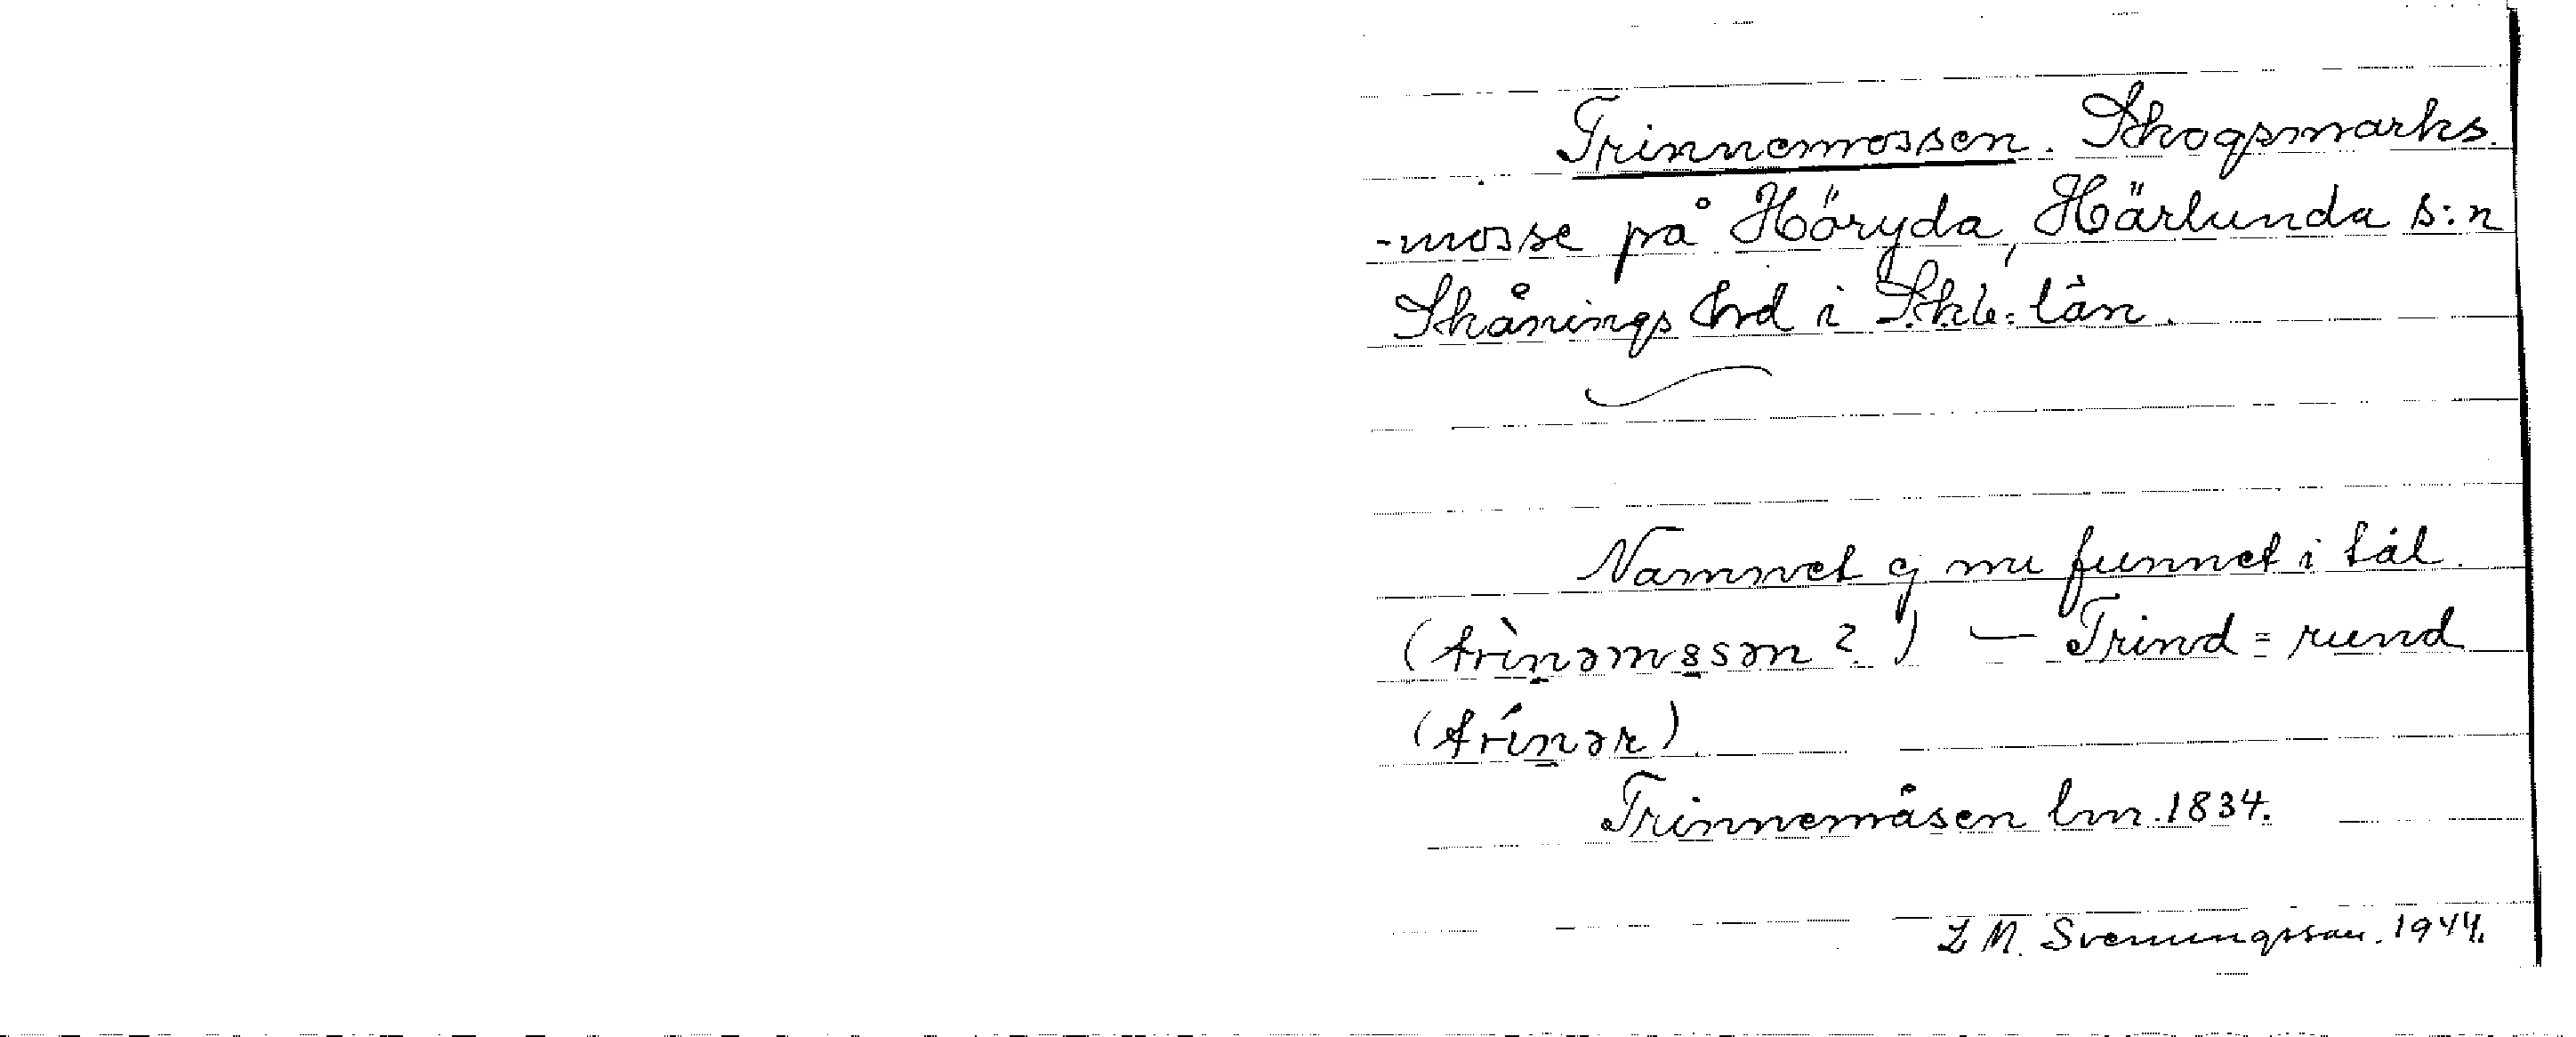 Trinnemossen. Skogsmarks-
-mosse på Höryda, Härlunda s:n
Skånings hrd i Skb: län.
Namnet ej nu funnet i tal.
(trìnəmꝏsən ?) — Trind = rund
(trínər)
Trinnemåsen lm. 1834.
Z M. Svenungsson. 1944.